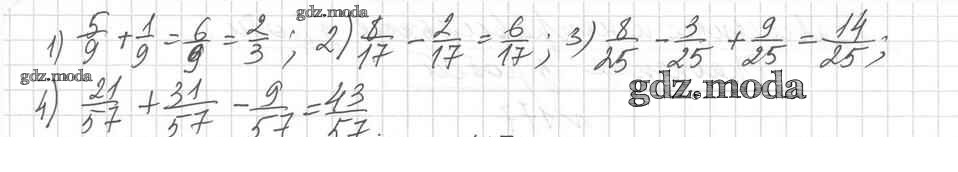 gdz.moda
1) 5/9 + 1/9 = 6/9 = 2/3 ; 2) 8/17 - 2/17 = 6/17 ; 3) 8/25 - 3/25 + 9/25 = 14/25 ;
gdz.moda
gdz.moda
4) 21/57 + 31/57 - 9/57 = 43/57 .